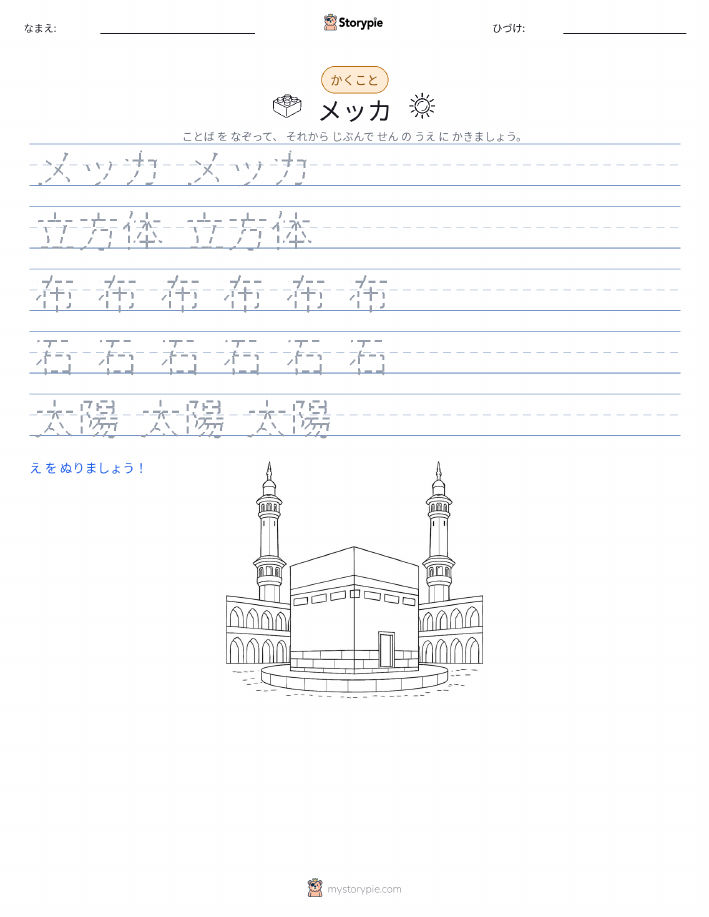 なまえ:
Storypie
ひづけ:
かくこと
メッカ
ことば を なぞって、 それから じぶんで せん の うえ に かきましょう。
メッカ メッカ
立方体 立方体
布 布 布 布 布 布
石 石 石 石 石 石
太陽 太陽 太陽
え を ぬりましょう！
mystorypie.com